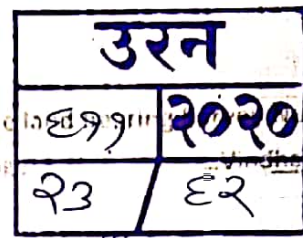 उरन
६११ २०२०
२३ / ६२